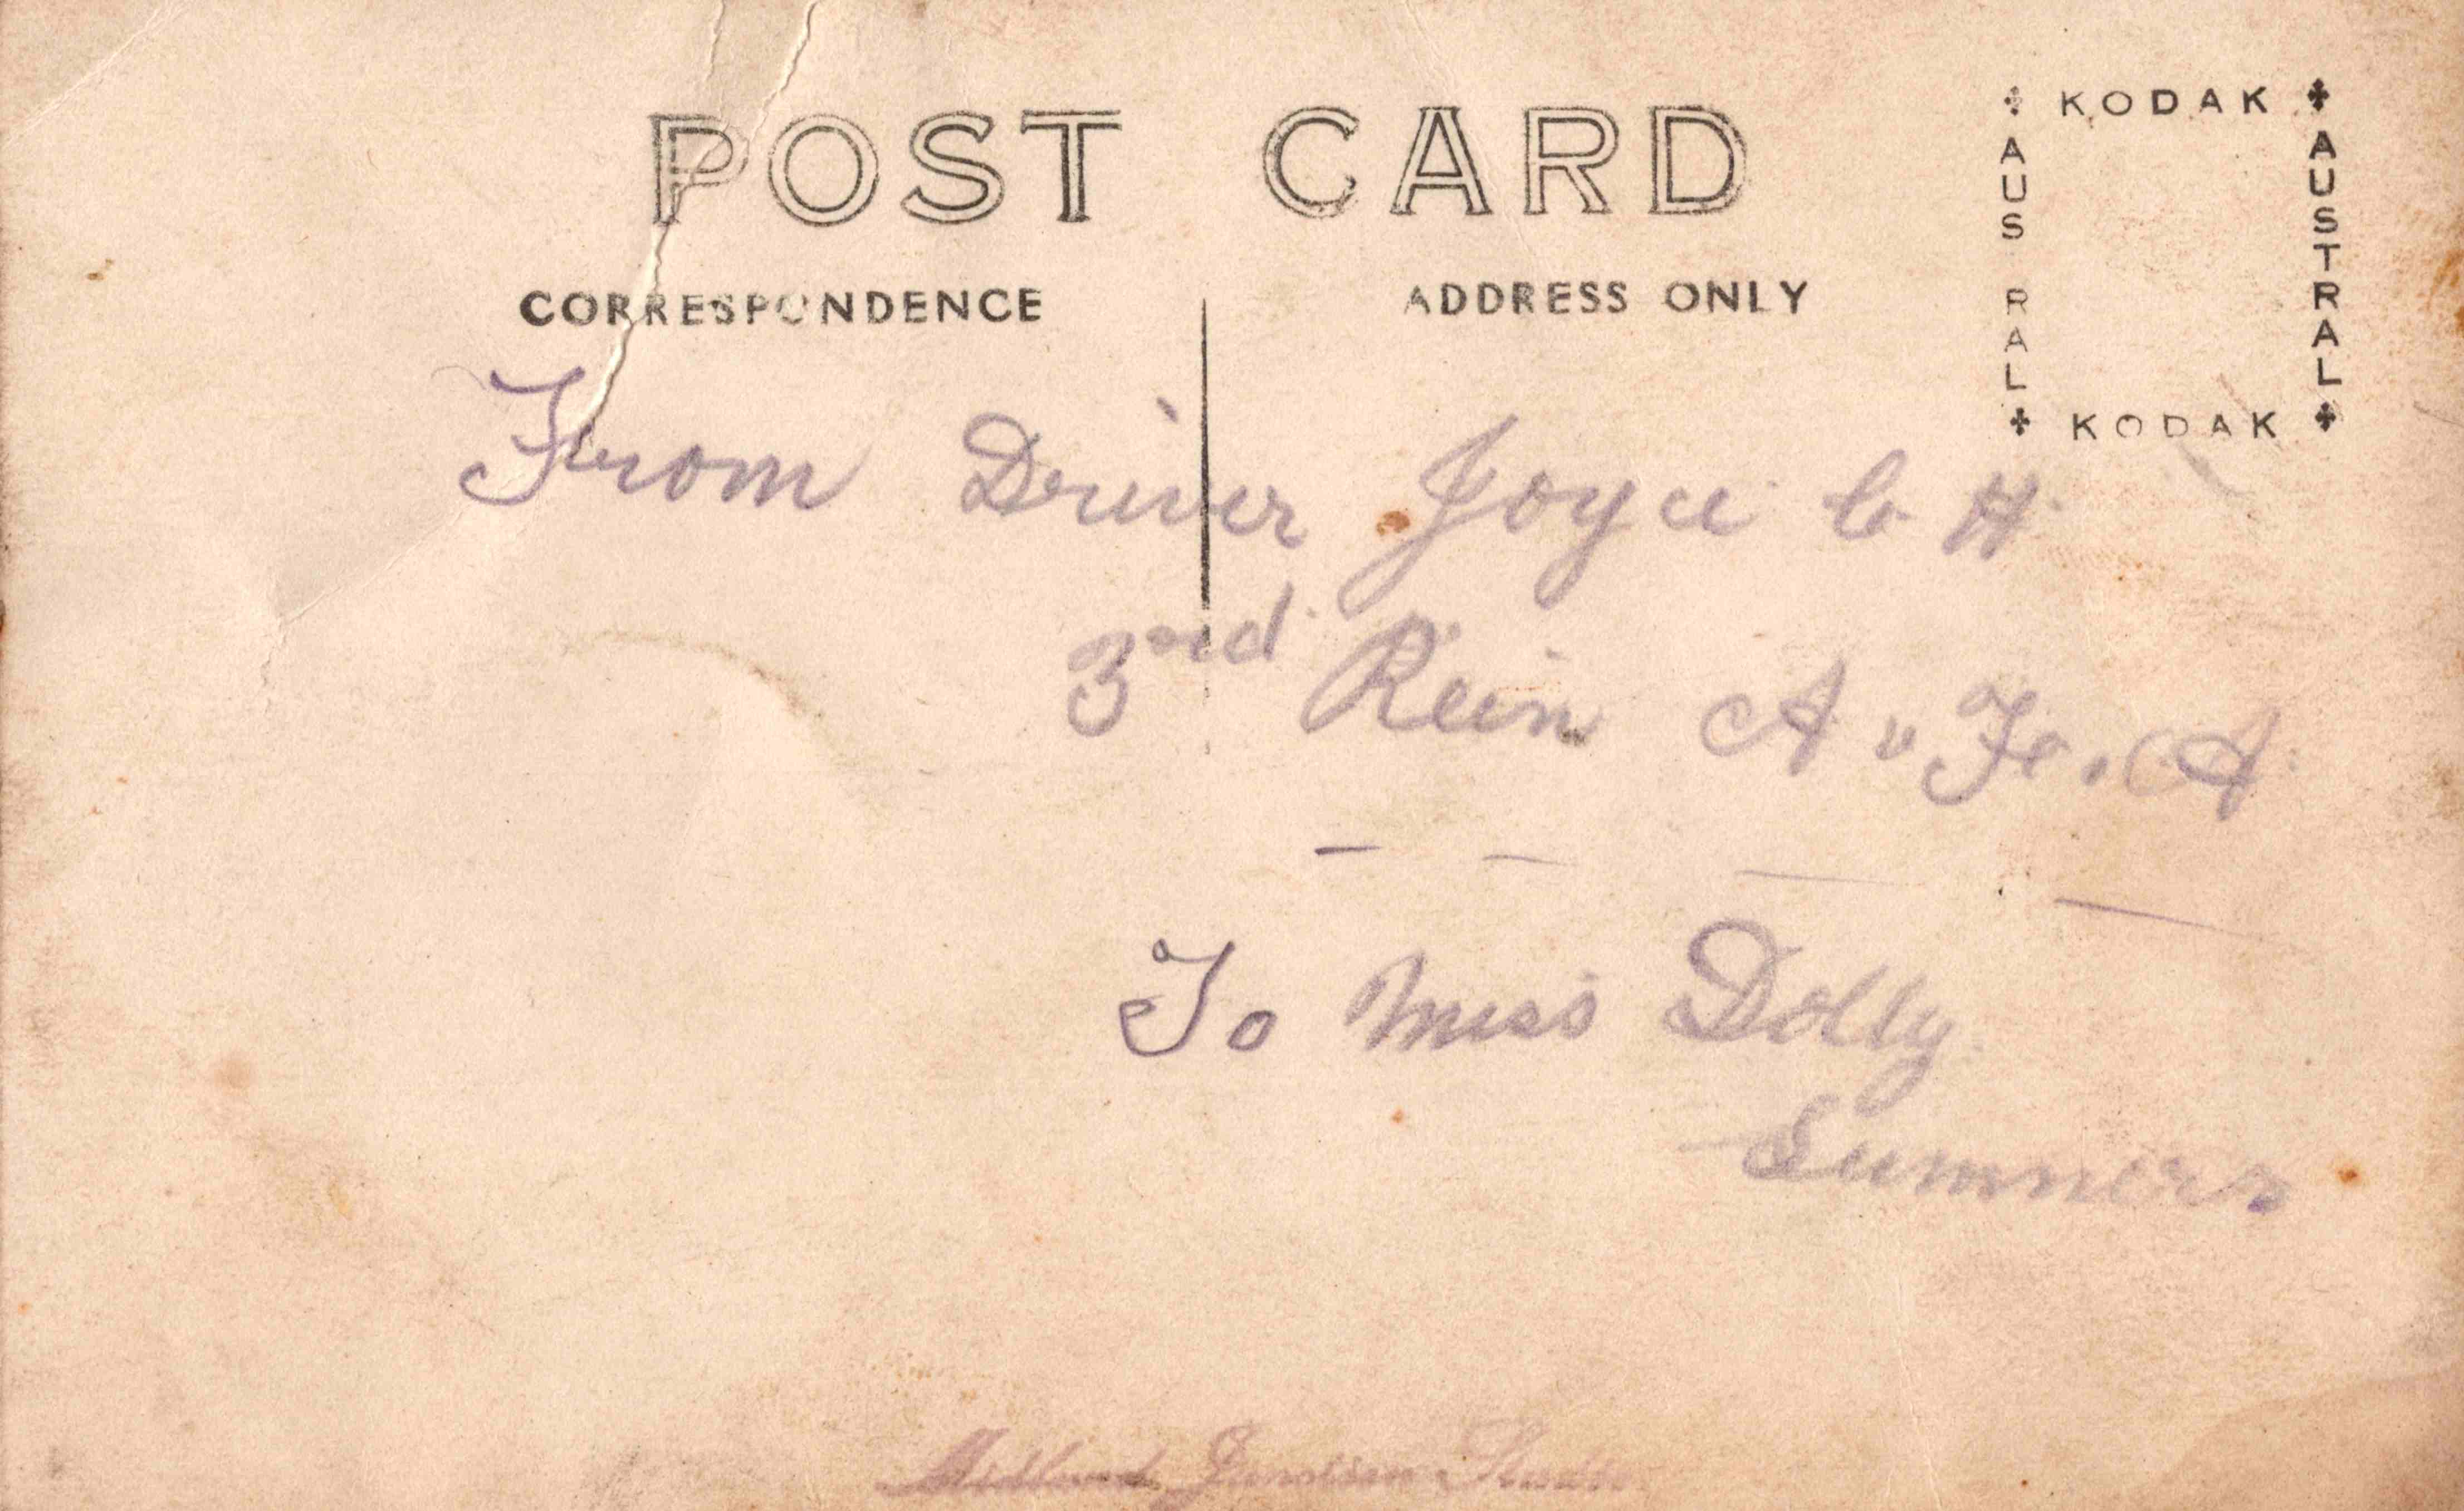 POST CARD
KODAK
AUSTRAL
AUSTRAL
KODAK
CORRESPONDENCE
ADDRESS ONLY
From Driver Joyce C H
3rd Rein A. F. A
To Miss Dolly
Summers
Midland Junction Studio